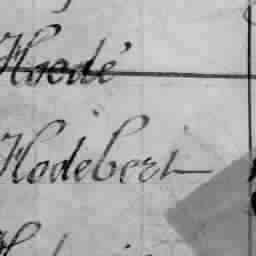 Hoedé
Hodebert